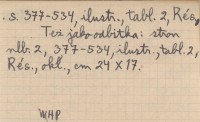 s. 377-534, ilustr., tabl. 2, Rés.,
Też jako odbitka: stron
nlb. 2, 377-534, ilustr., tabl. 2,
Rés., okł., cm 24 X 17.
WHP